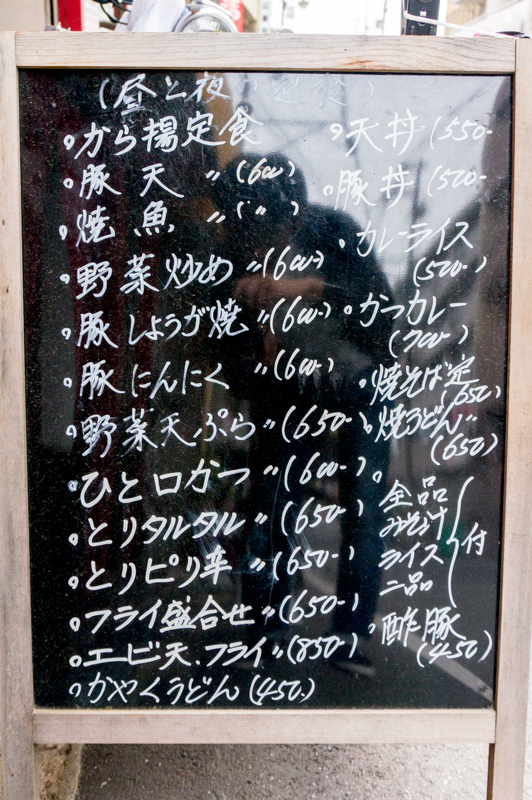 (昼と夜の定食)
。から揚定食
。豚天 〃 (600)
。焼魚 〃 ( 〃 )
。野菜炒め 〃 (600-)
。豚しょうが焼 〃 (600-)
。豚にんにく 〃 (600-)
。野菜天ぷら 〃 (650-)
。ひと口かつ 〃 (600-)
。とりタルタル 〃 (650-)
。とりピリ辛 〃 (650-)
。フライ盛合せ 〃 (650-)
。エービ天.フライ 〃 (850-)
。かやくうどん (450.)
。天丼 (550-
。豚丼 (500-
。カレーライス
(500-)
。かつカレー
(700-)
。焼そば定
(650)
。焼うどん 〃
(650)
。全品
みそ汁
ライス
二品
付
。酢豚
(450)